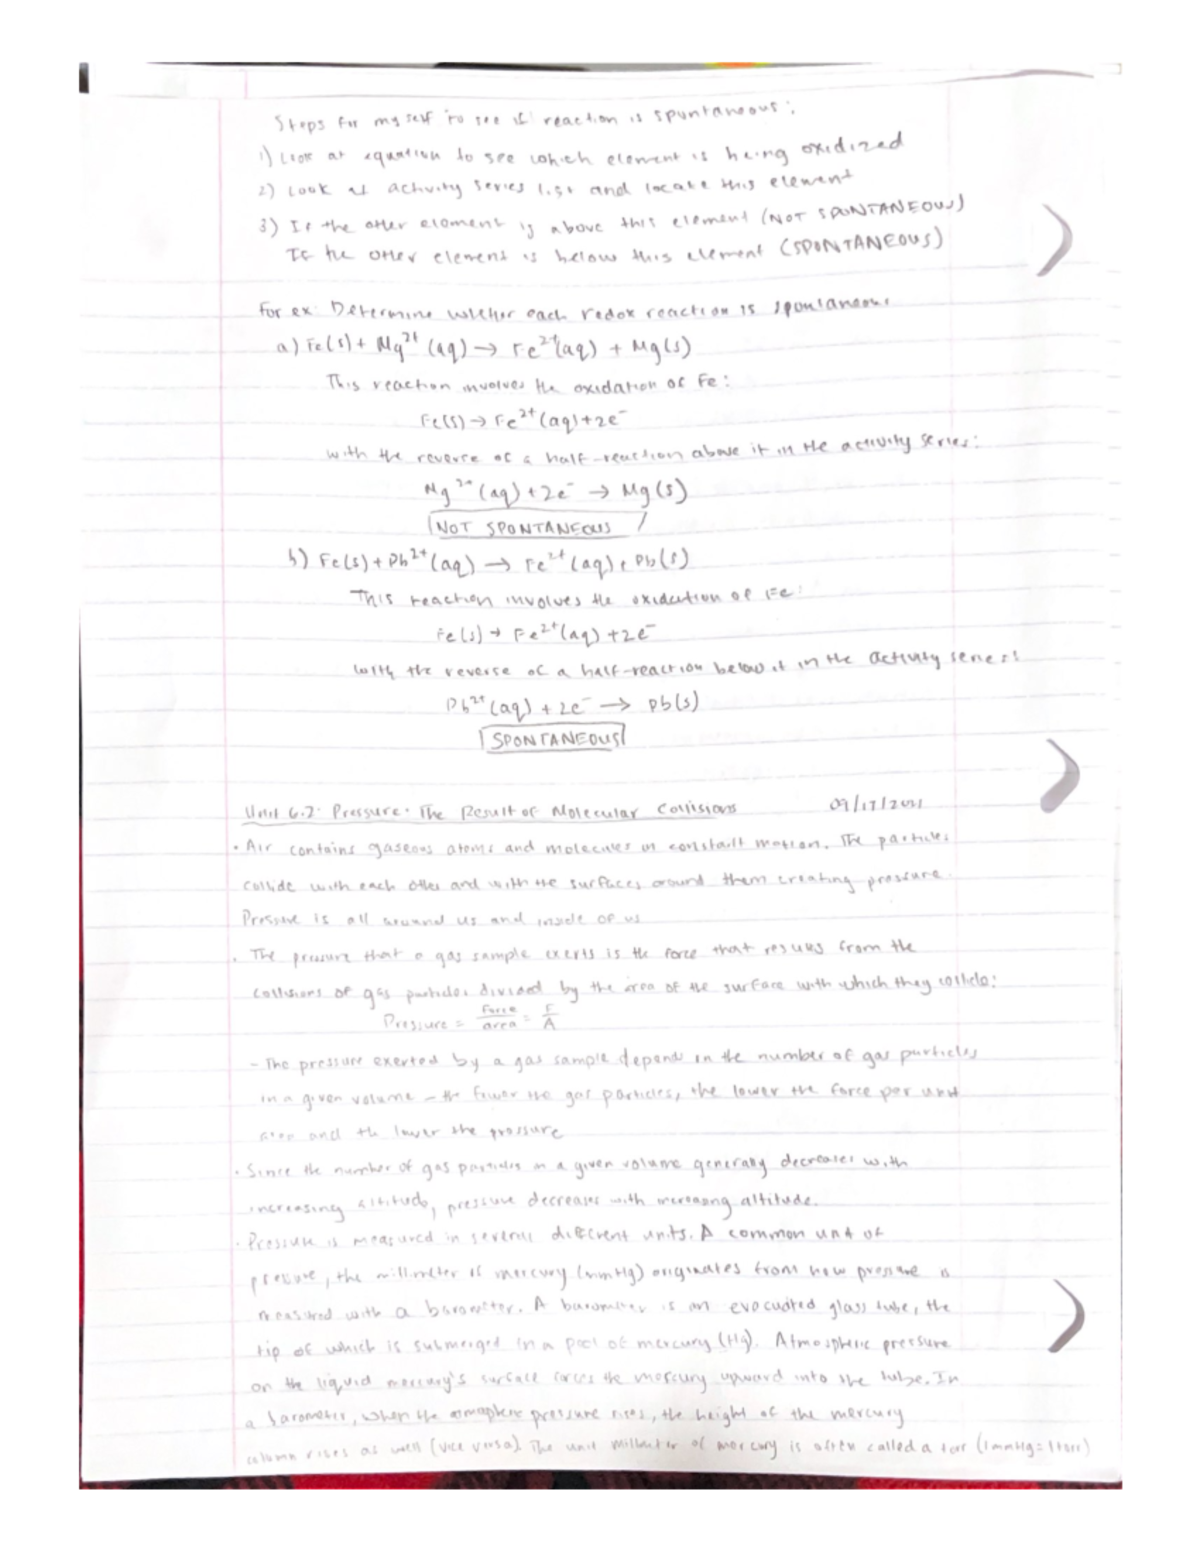 Steps for my self to see if reaction is spontaneous:
1) Look at equation to see which element is being oxidized
2) Look at activity series list and locate this element
3) If the other element is above this element (NOT SPONTANEOUS)
If the other element is below this element (SPONTANEOUS)
For ex: Determine whether each redox reaction is spontaneous
a) Fe(s) + Mg²⁺(aq) → Fe²⁺(aq) + Mg(s)
This reaction involves the oxidation of Fe:
Fe(s) → Fe²⁺(aq) + 2e⁻
with the reverse of a half-reaction above it in the activity series:
Mg²⁺(aq) + 2e⁻ → Mg(s)
NOT SPONTANEOUS
b) Fe(s) + Pb²⁺(aq) → Fe²⁺(aq) + Pb(s)
This reaction involves the oxidation of Fe:
Fe(s) → Fe²⁺(aq) + 2e⁻
with the reverse of a half-reaction below it in the activity series:
Pb²⁺(aq) + 2e⁻ → Pb(s)
SPONTANEOUS
Unit 6.2: Pressure: The Result of Molecular Collisions 09/17/2021
• Air contains gaseous atoms and molecules in constant motion. The particles
collide with each other and with the surfaces around them creating pressure.
Pressure is all around us and inside of us
• The pressure that a gas sample exerts is the force that results from the
collisions of gas particles divided by the area of the surface with which they collide:
Pressure = Force/area = F/A
- The pressure exerted by a gas sample depends on the number of gas particles
in a given volume - the fewer the gas particles, the lower the force per unit
area and the lower the pressure
• Since the number of gas particles in a given volume generally decreases with
increasing altitude, pressure decreases with increasing altitude.
• Pressure is measured in several different units. A common unit of
pressure, the millimeter of mercury (mmHg) originates from how pressure is
measured with a barometer. A barometer is an evacuated glass tube, the
tip of which is submerged in a pool of mercury (Hg). Atmospheric pressure
on the liquid mercury's surface forces the mercury upward into the tube. In
a barometer, when the atmospheric pressure rises, the height of the mercury
column rises as well (vice versa). The unit millimeter of mercury is often called a torr (1mmHg = 1torr)